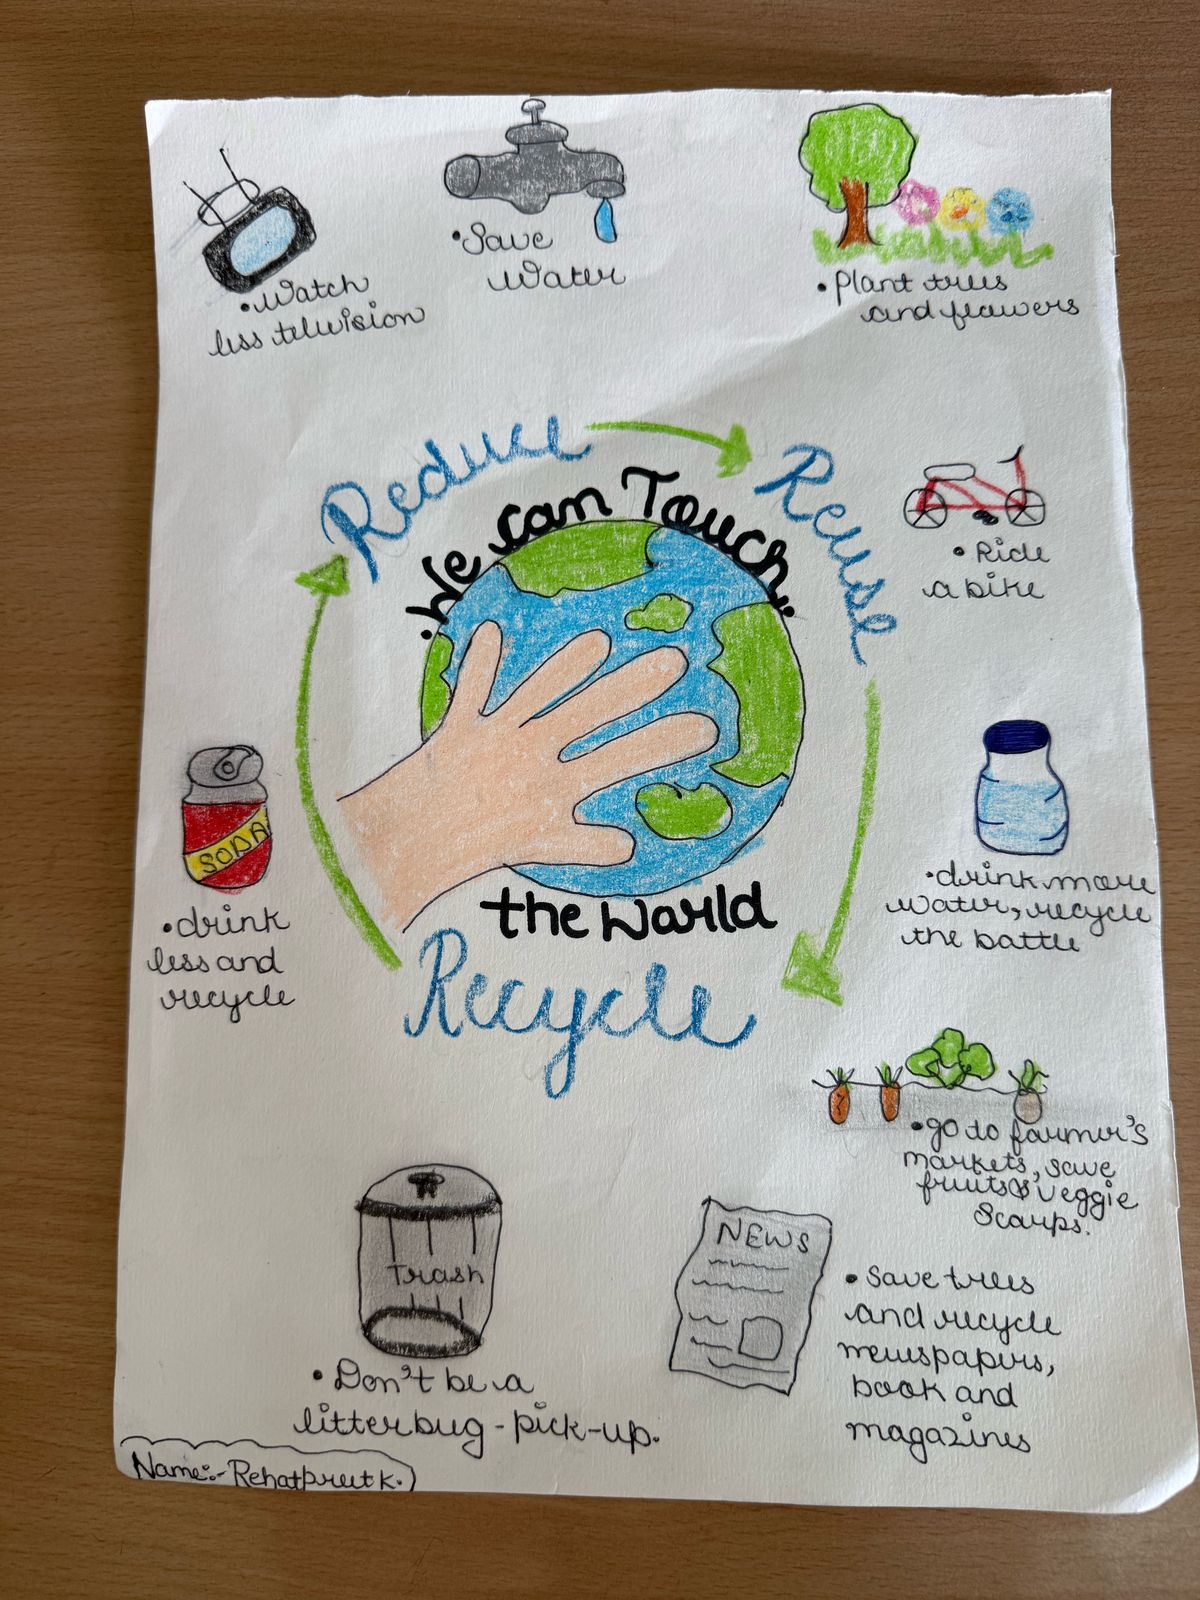 • Watch
less television
• Save
Water
• Plant trees
and flowers
Reduce
Reuse
• We can Touch.
• Ride
a bike
SODA
• drink
less and
recycle
• drink more
water, recycle
the bottle
the World
Recycle
• go to farmer's
markets, save
fruits & veggie
Scarps.
Trash
NEWS
• Save trees
and recycle
newspapers,
book and
magazines
• Don't be a
litterbug - pick-up.
Name:- Rehatpreet K.